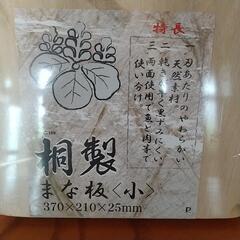 特長
一 刃あたりのやわらかい
天然素材。
二 乾きが早く黒ずみにくい
三 両面使用で魚と肉等で
使い分け
桐製
まな板〈小〉
370×210×25mm
P